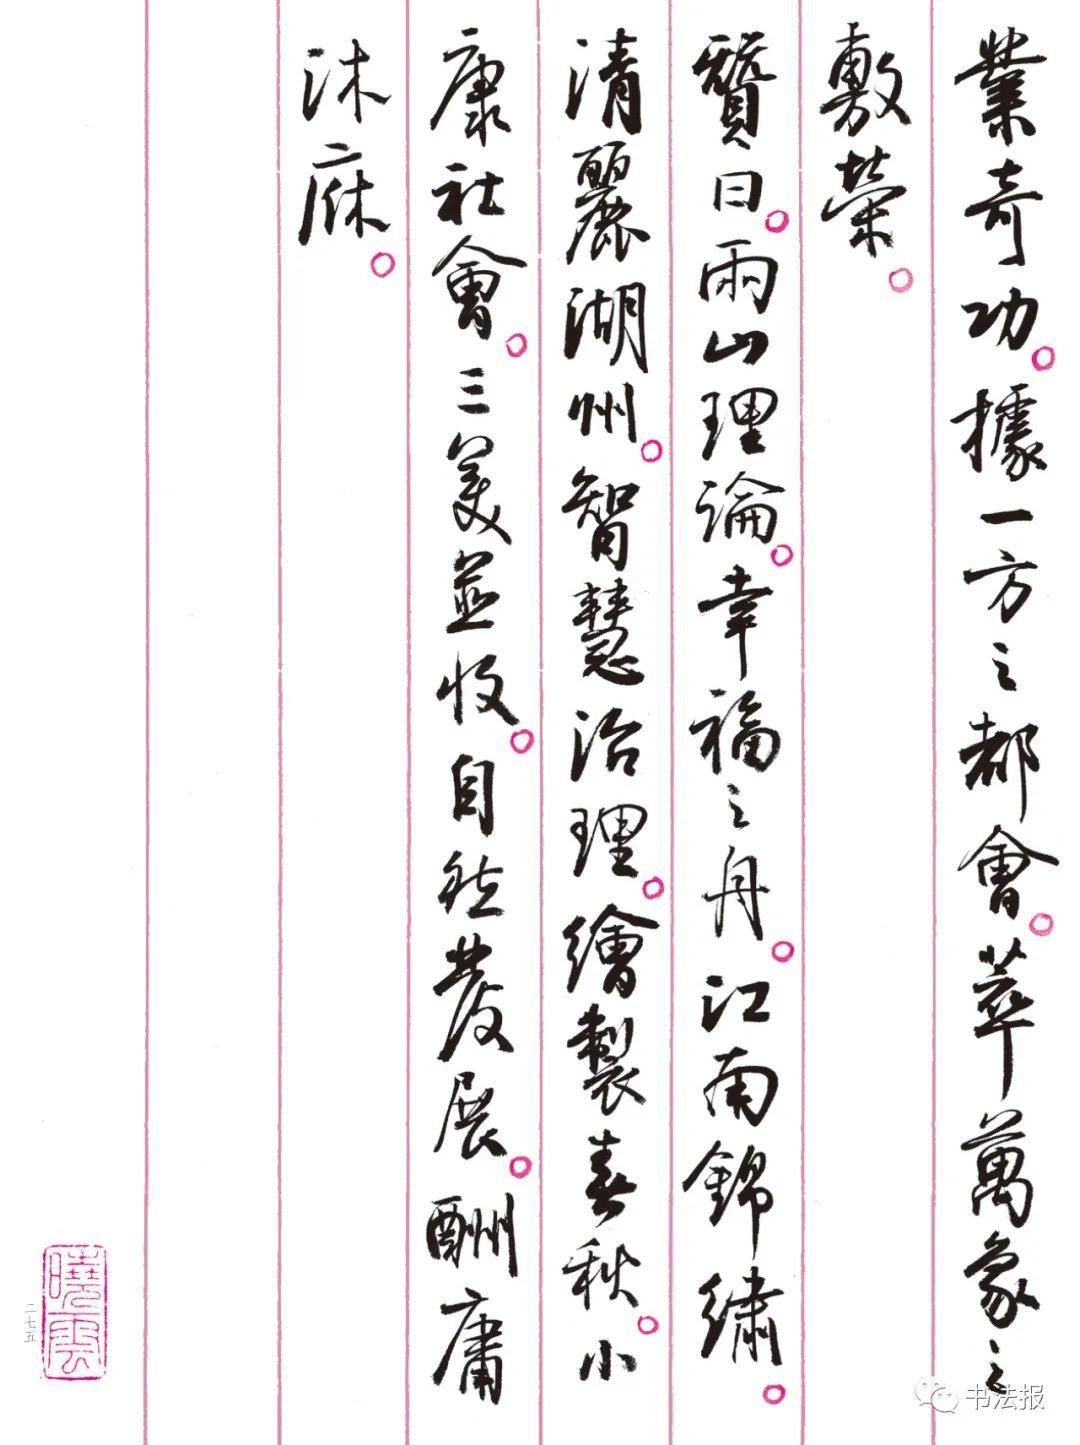 業奇功。據一方之都會。萃萬象之
敷榮。
贊曰。兩山理論。幸福之舟。江南錦繡。
清麗湖州。智慧治理。繪製春秋。小
康社會。三美並收。自然發展。酬庸
沐庥。
二七五
曉雲
书法报